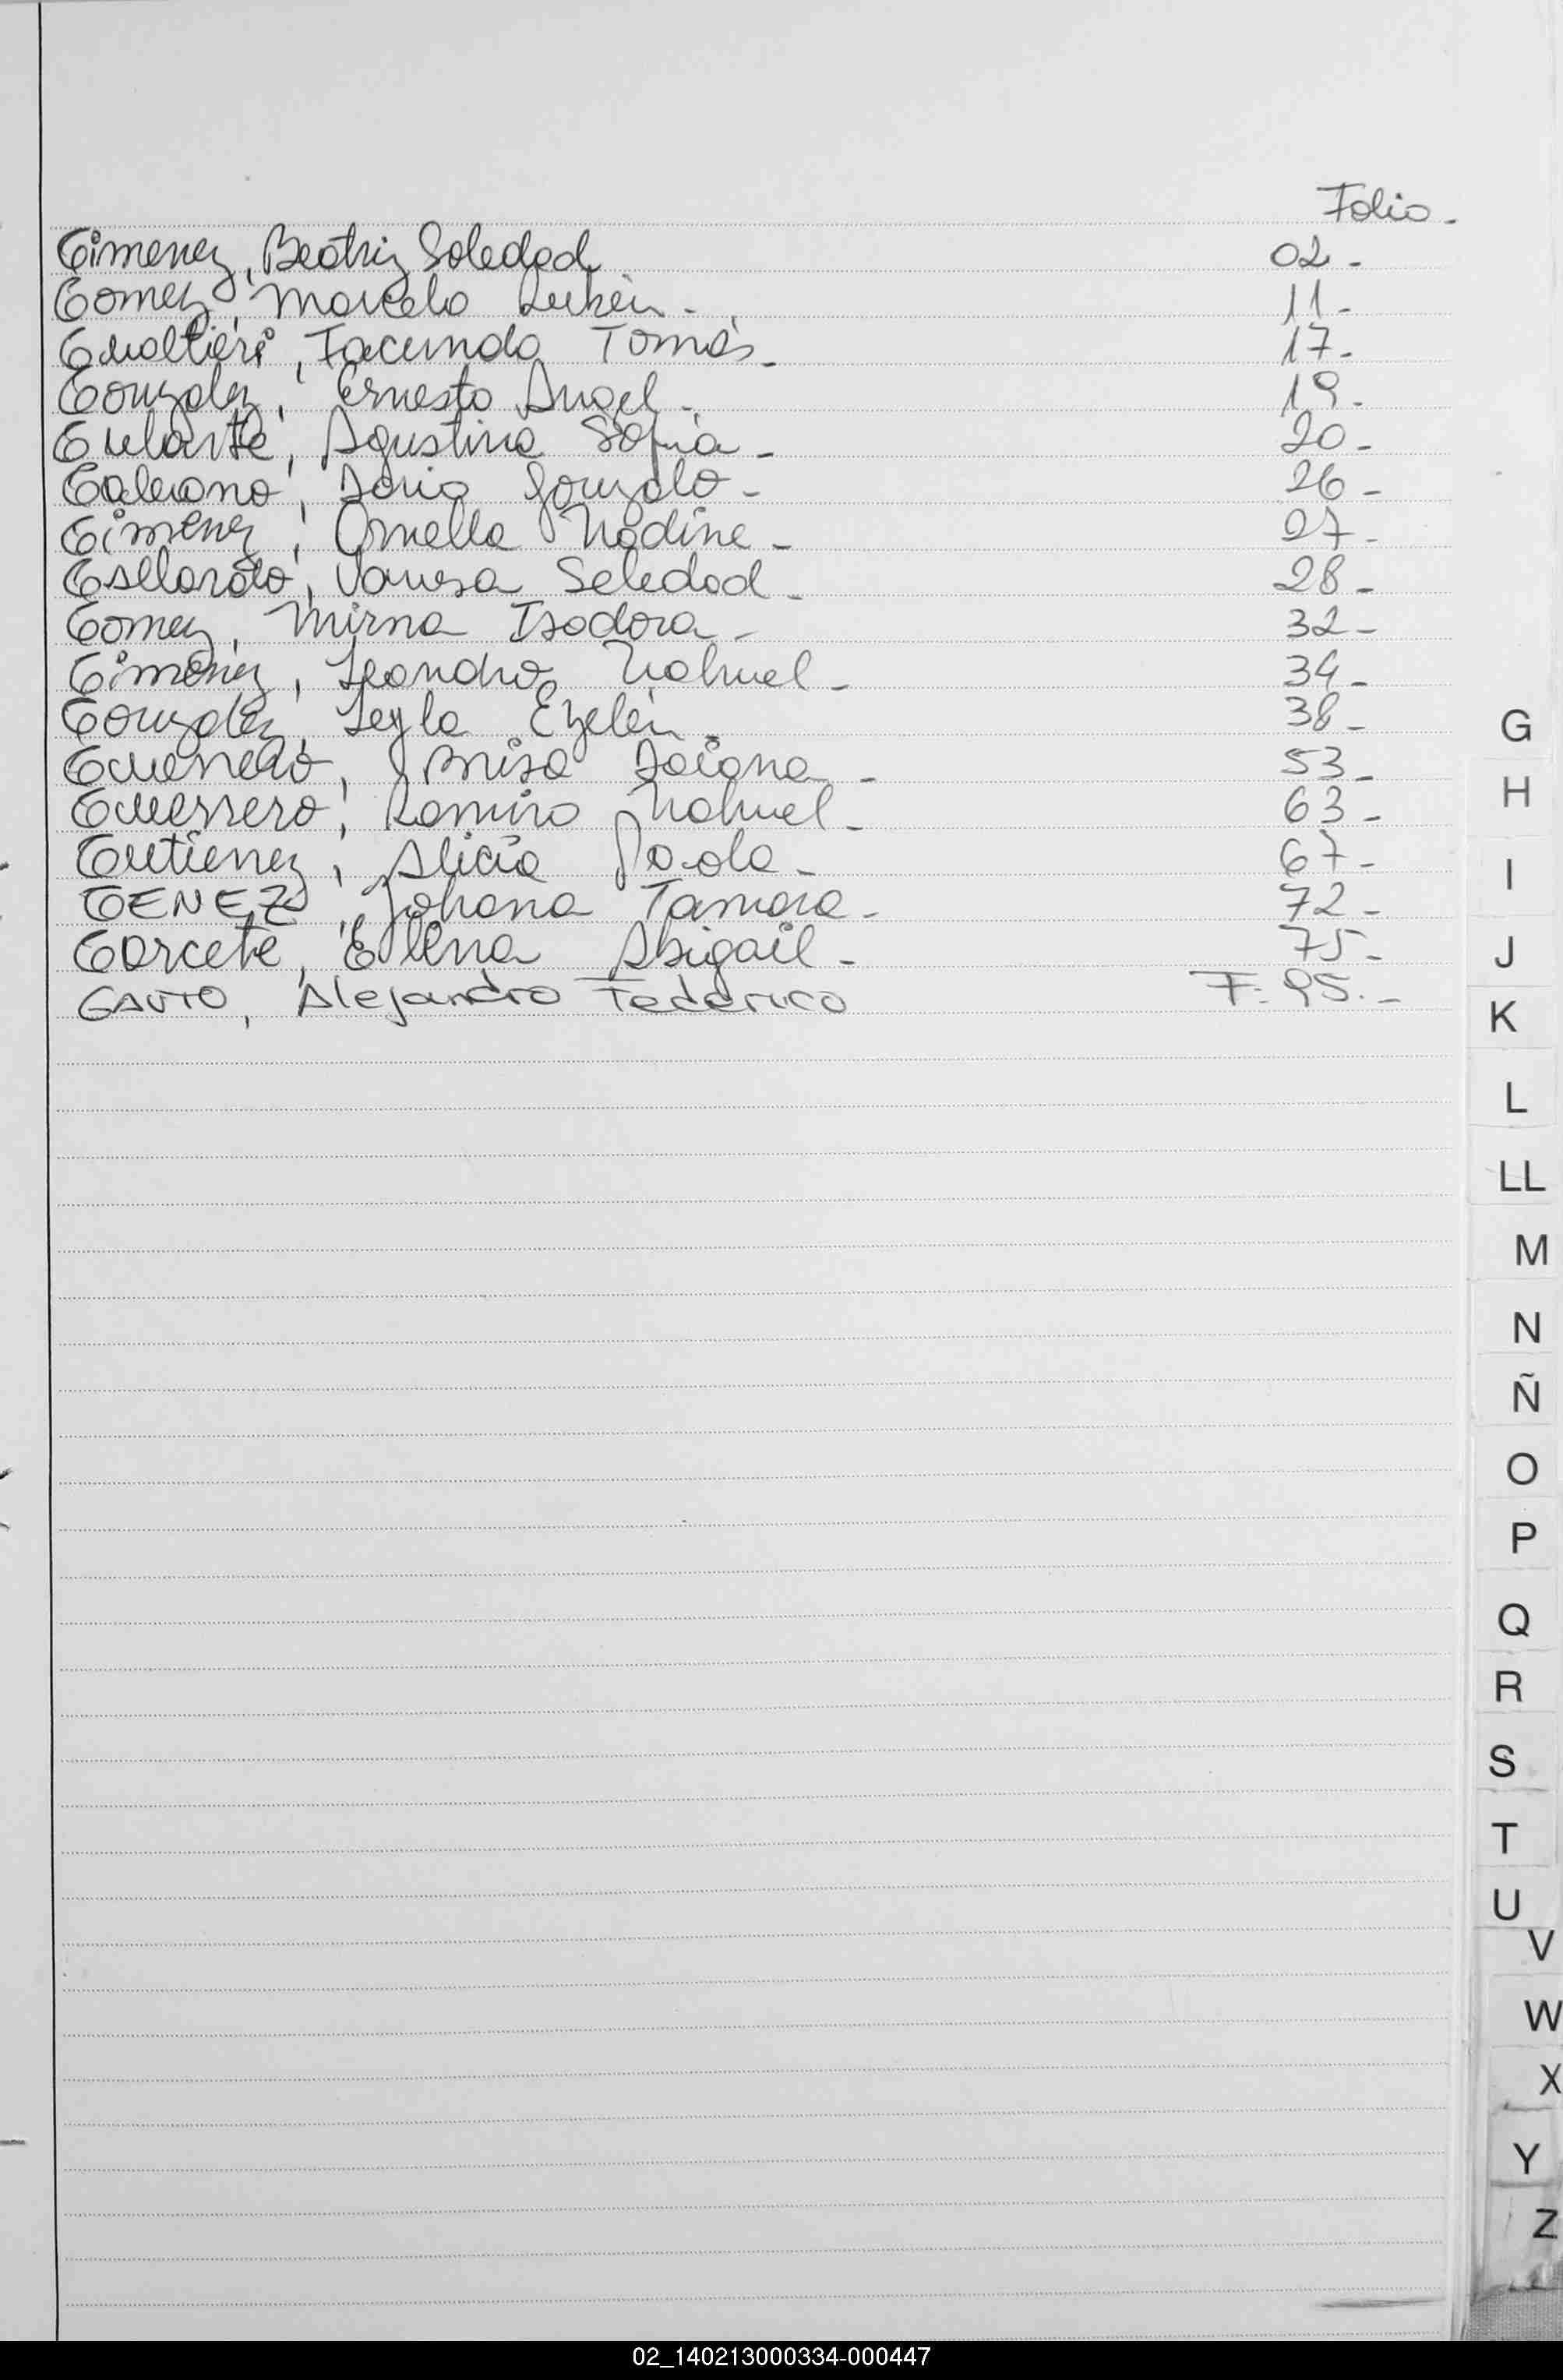 Folio -
Gimenez, Beatriz Soledad 02 -
Gomez, Marcelo Rubén - 11 -
Gualtieri, Facundo Tomás - 17 -
Gonzalez, Ernesto Angel - 19 -
Gularte, Agustina Sofia - 20 -
Galeano, Dario Gonzalo - 26 -
Gimenez, Ornella Nadine - 27 -
Vanesa Soledad - 28 -
Gomez, Mirna Isadora - 32 -
Gimenez, Leandro Nahuel - 34 -
Gonzalez, Leyla Ezelén - 38 -
Guerrero, Brisa Daiana - 53 -
Guerrero, Ramiro Nahuel - 63 -
Gutierrez, Alicia Paola - 67 -
GENEZ, Johana Tamara - 72 -
Garcete, Elena Abigail - 75 -
GAUTO, Alejandro Federico F: 95. -
G
H
I
J
K
L
LL
M
N
Ñ
O
P
Q
R
S
T
U
V
W
X
Y
Z
02_140213000334-000447